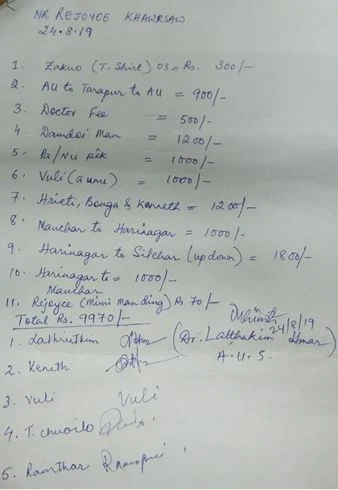 NK. REJOYCE KHAWRSAW
24.8.19
1. Zakuo (T-Shirt) 03 = Rs. 300/-
2. AU to Tarapur to AU = 900/-
3. Doctor Fee = 500/-
4. Damdoi Man = 1200/-
5. Pa/Nu pêk = 1000/-
6. Vuli (a unu) = 1000/-
7. Hrieti, Bonga & Kenneth = 1200/-
8 Nauchar to Harinagar = 1000/-
9. Harinagar to Silchar (up down) = 1800/-
10. Harinagar to = 1000/-
Nauchar
11. Rejoyce (Mimi man ding) Rs 70/-
Total Rs. 9970/-
24/8/19
1. Lalhriethim
(Dr. Lalthakim Hmar)
A.U.S.
2. Keneth
3. Vuli Vuli
4. T. Chuoilo
5. Ramthar